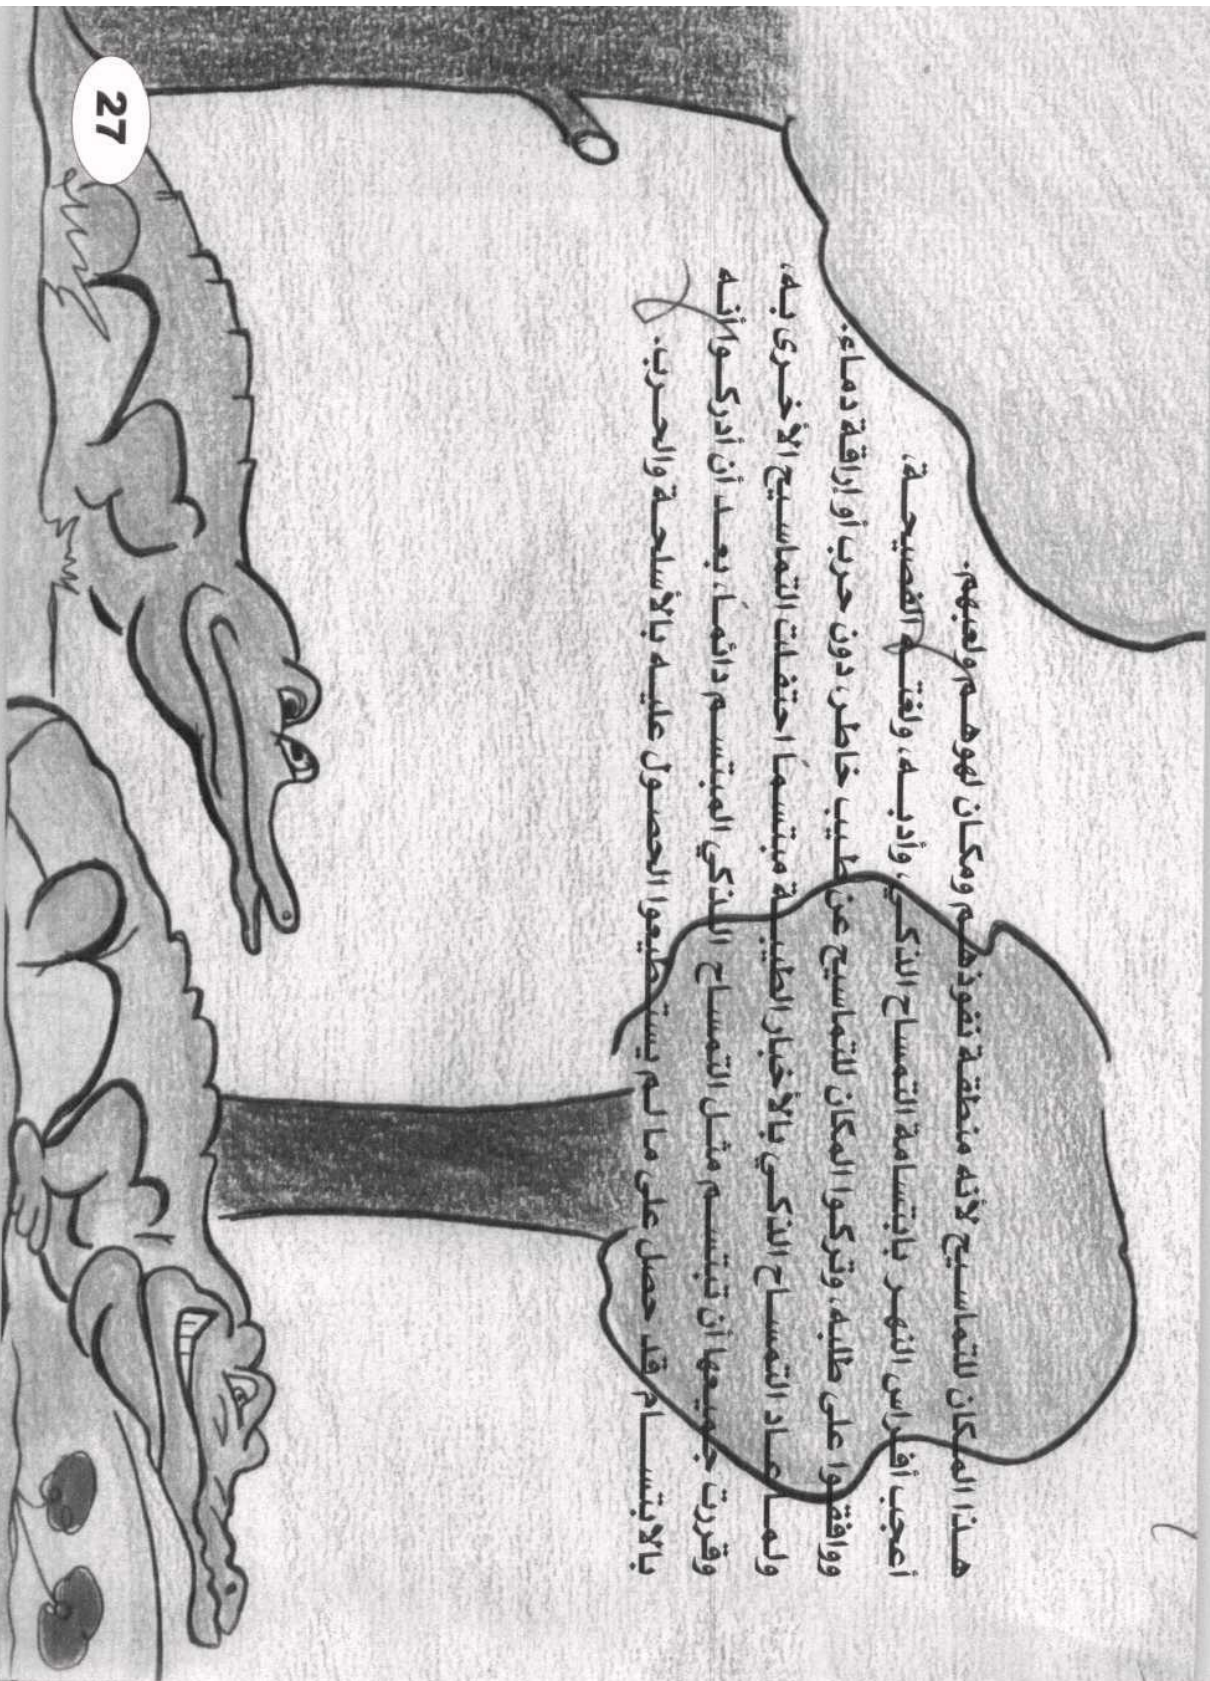 هذا المكان للتماسيح لأنه منطقة نفوذهم ومكان لهوهم ولعبهم.
أعجب أفراس النهر بابتسامة التمساح الذكي، وأدبه، ولغته الفصيحة،
ووافقوا على طلبه، وتركوا المكان للتماسيح عن طيب خاطر، دون حرب أو إراقة دماء.
ولما عاد التمساح الذكي بالأخبار الطيبة مبتسمًا احتفلت التماسيح الأخرى به،
وقررت جميعها أن تبتسم مثل التمساح الذكي المبتسم دائمًا، بعد أن أدركوا أنه
بالابتسام قد حصل على ما لم يستطيعوا الحصول عليه بالأسلحة والحرب.
27